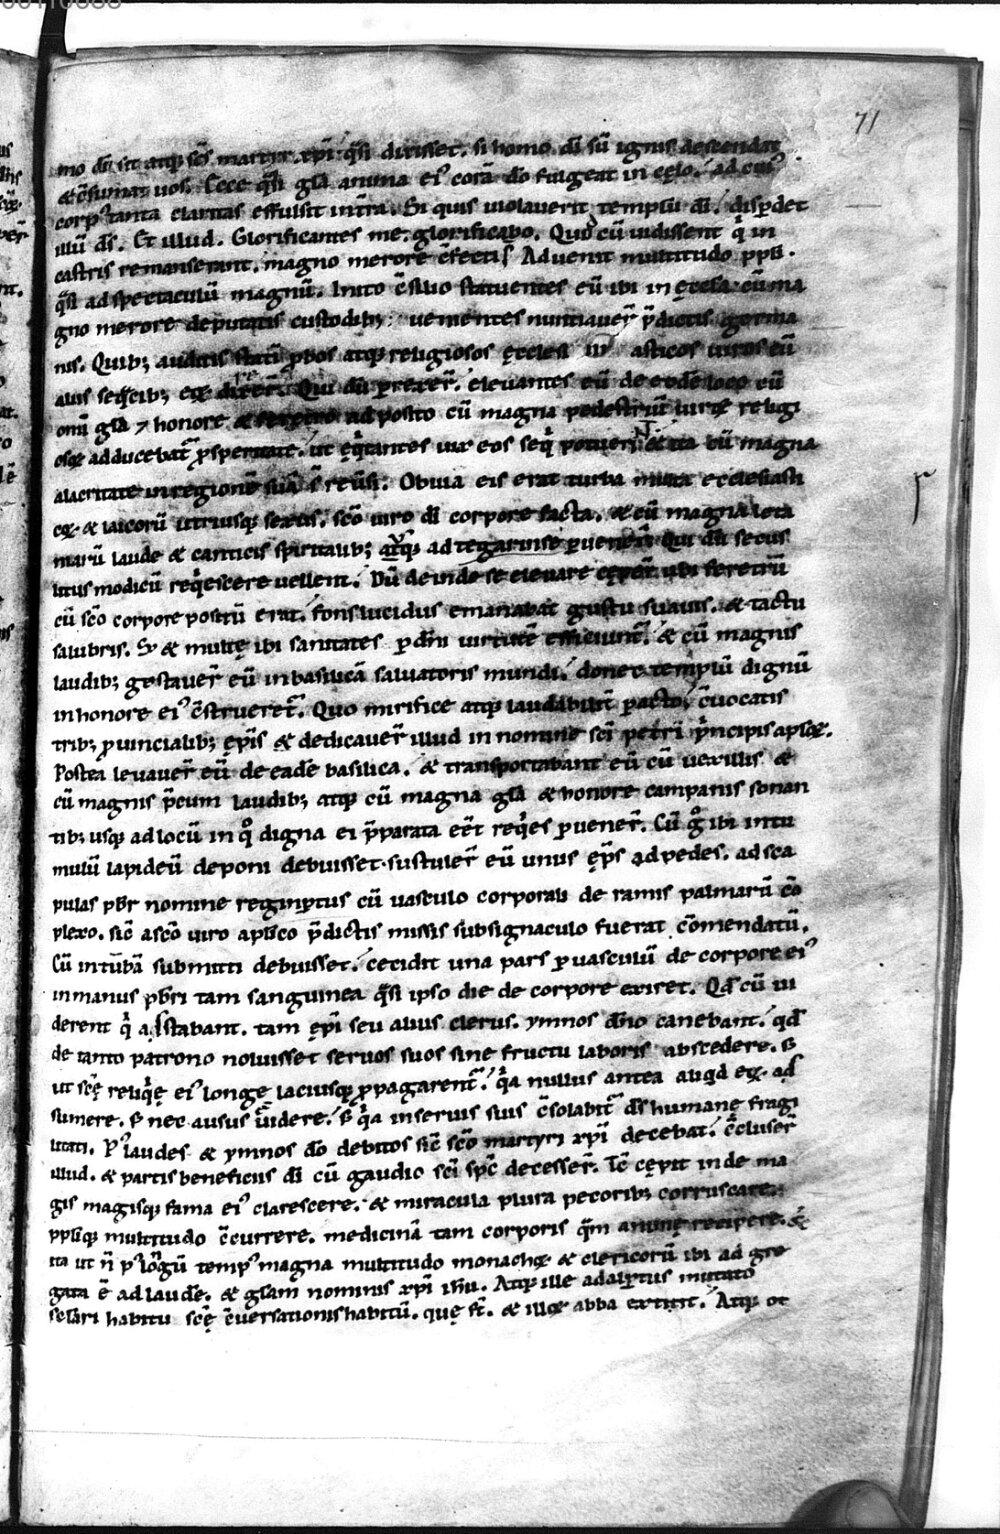 00110088
71
mo dī sit atq; scs̄ martyr xp̄i q̄si dixisset. si homo dī sū ignis descendat
& c̄sumat uos. Ecce q̄si gl̄a anima ei' corā dō fulgeat in cęlo. ad cui'
corp' tanta claritas effulsit in t̄ra. Si quis uiolauerit templū dī. disp̄det
illū dī. Et illud. Glorificantes me. glorificabo. Quō cū uidissent q' in
castris remanserant. magno merore c̄fecti s̄ Aduenit multitudo ppl̄i.
q̄si ad spectaculū magnū. Inito c̄silio statuentes eū ibi in ęccl̄a cū ma
gno merore deputatis custodib; uenientes nuntiauer̄ p̄dictis germa
nis. Quib; auditis p̄bos atq; religiosos ęcclesi asticos uiros cū
aliis Qui dū p̄rexer̄. eleuantes eū de eodē loco cū
omī gl̄a & honore posito cū magna religi
osq; adducebat p̄speritate. ut eq'tantes uix eos seq' potuer̄ cū magna
alacritate in regionē suā s̄ reūsi. Obuia eis erat turba multa ecclesiasti
cq; & laicorū utriusq; sexus. scō uiro dī corpore facta. & cū magna leta
niarū laude & canticis spiritalib; atq; ad tegarinse p̄uener̄ Qui dū secus
litus modicū req'escere uellent. Dū deinde se eleuare cęper̄ ubi feretrū
cū scō corpore positū erat. fons lucidus emanabat gustu suauis. & tactu
salubris. S; & multę ibi sanitates p̄ dn̄i uirtutē efficiunt̄. & cū magnis
laudib; gestauer̄ eū in basilicā saluatoris mundi. donec templū dignū
in honore ei' c̄strueret̄. Quo mirifice atq; laudabilit̄ p̄acto. c̄uocatis
trib; p̄uincialib; ęp̄is & dedicauer̄ illud in nomine sc̄i petri p'ncipis ap̄lor̄.
Postea leuauer̄ eū de eadē basilica. & transportabant eū cū uexillis &
cū magnis p̄cum laudib; atq; cū magna gl̄a & honore campanis sonan
tib; usq; ad locū in q° digna ei p̄parata eēt req'es p̄uener̄. Cū g° ibi in tu
mulū lapideū deponi debuisset. sustuler̄ eū unus ęp̄s ad pedes. ad sca
pulas pb̄r nomine reginp̄tus cū uasculo corporali de ramis palmarū cō
plexo. sic̄ a scō uiro ap̄lico p̄dictis missis sub signaculo fuerat c̄mendatū.
Cū in tūbā submitti debuisset. cecidit una pars p̄ uasculū de corpore ei'
in manus pb̄ri tam sanguinea q̄si ipso die de corpore exiret. Qd̄ cū ui
derent q' astabant. tam ęp̄i seu alius clerus. ymnos dn̄o canebant. qd̄
de tanto patrono noluisset seruos suos sine fructu laboris abscedere. S;
ut scę̄ reliq'ę ei' longe laciusq; p̄pagarent̄. q'a nullus antea aliqd̄ eq; ad
sumere. S; nec ausus uidere. S; q'a in seruis suis c̄solabit̄ dī humanę fragi
litati. P' laudes & ymnos dō debitos sic̄ scō martyri xp̄i decebat. c̄cluser̄
illud. & partis beneficiis dī cū gaudio sc̄i sp̄c decesser̄. Tc̄ cępit inde ma
gis magisq; fama ei' clarescere. & miracula plura peccorib; corruscare.
pplīq; multitudo c̄currere. medicinā tam corporis q̄m animę recipere. &
ita ut n̄ p' lo°gū temp' magna multitudo monachor̄ & clericorū ibi ad gre
gata ē ad laudē. & gl̄am nominis xp̄i ihū. Atq; ille adalp̄tus mutato
sclāri habitu scę̄ c̄uersationis habitū. quę st̄. & illor̄ abba extitit. Atq; ot